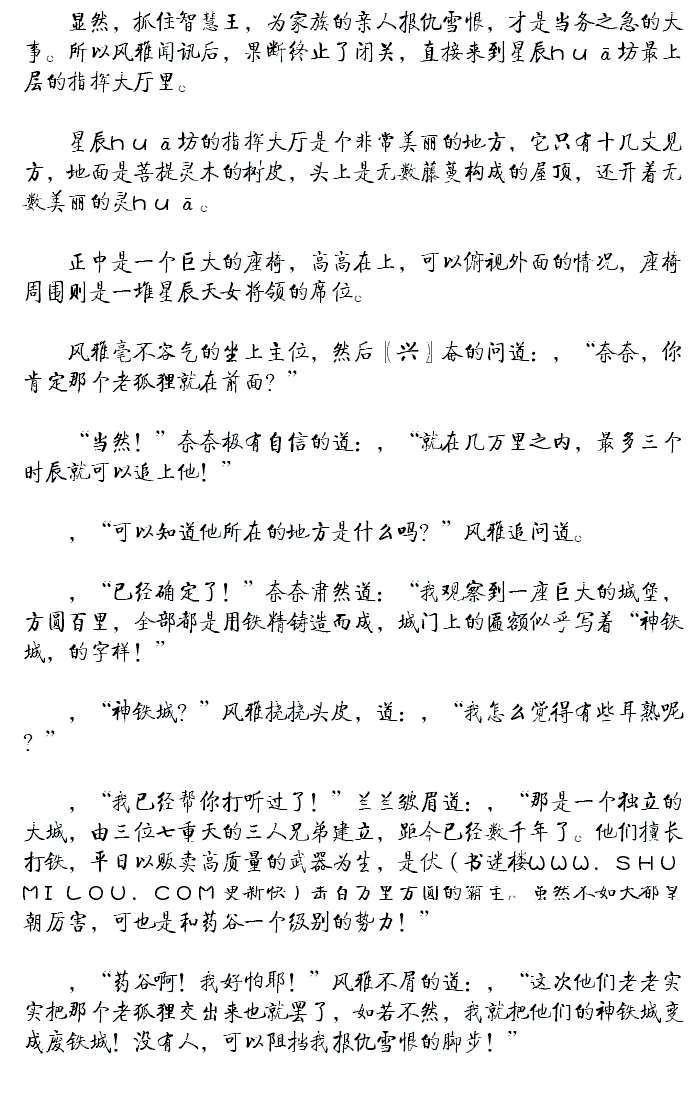 显然，抓住智慧王，为家族的亲人报仇雪恨，才是当务之急的大
事。所以风雅闻讯后，果断终止了闭关，直接来到星辰huā坊最上
层的指挥大厅里。
星辰huā坊的指挥大厅是个非常美丽的地方，它只有十几丈见
方，地面是菩提灵木的树皮，头上是无数藤蔓构成的屋顶，还开着无
数美丽的灵huā。
正中是一个巨大的座椅，高高在上，可以俯视外面的情况，座椅
周围则是一堆星辰天女将领的席位。
风雅毫不客气的坐上主位，然后〖兴〗奋的问道：，“奈奈，你
肯定那个老狐狸就在前面？”
“当然！”奈奈极有自信的道：，“就在几万里之内，最多三个
时辰就可以追上他！”
，“可以知道他所在的地方是什么吗？”风雅追问道。
，“已经确定了！”奈奈肃然道：“我观察到一座巨大的城堡，
方圆百里，全部都是用铁精铸造而成，城门上的匾额似乎写着“神铁
城，的字样！”
，“神铁城？”风雅挠挠头皮，道：，“我怎么觉得有些耳熟呢
？”
，“我已经帮你打听过了！”兰兰皱眉道：，“那是一个独立的
大城，由三位七重天的三人兄弟建立，距今已经数千年了。他们擅长
打铁，平日以贩卖高质量的武器为生，是伏（书迷楼WWW．SHU
MILOU．COM更新快）击百万里方圆的霸主。虽然不如大都皇
朝厉害，可也是和药谷一个级别的势力！”
，“药谷啊！我好怕耶！”风雅不屑的道：，“这次他们老老实
实把那个老狐狸交出来也就罢了，如若不然，我就把他们的神铁城变
成废铁城！没有人，可以阻挡我报仇雪恨的脚步！”